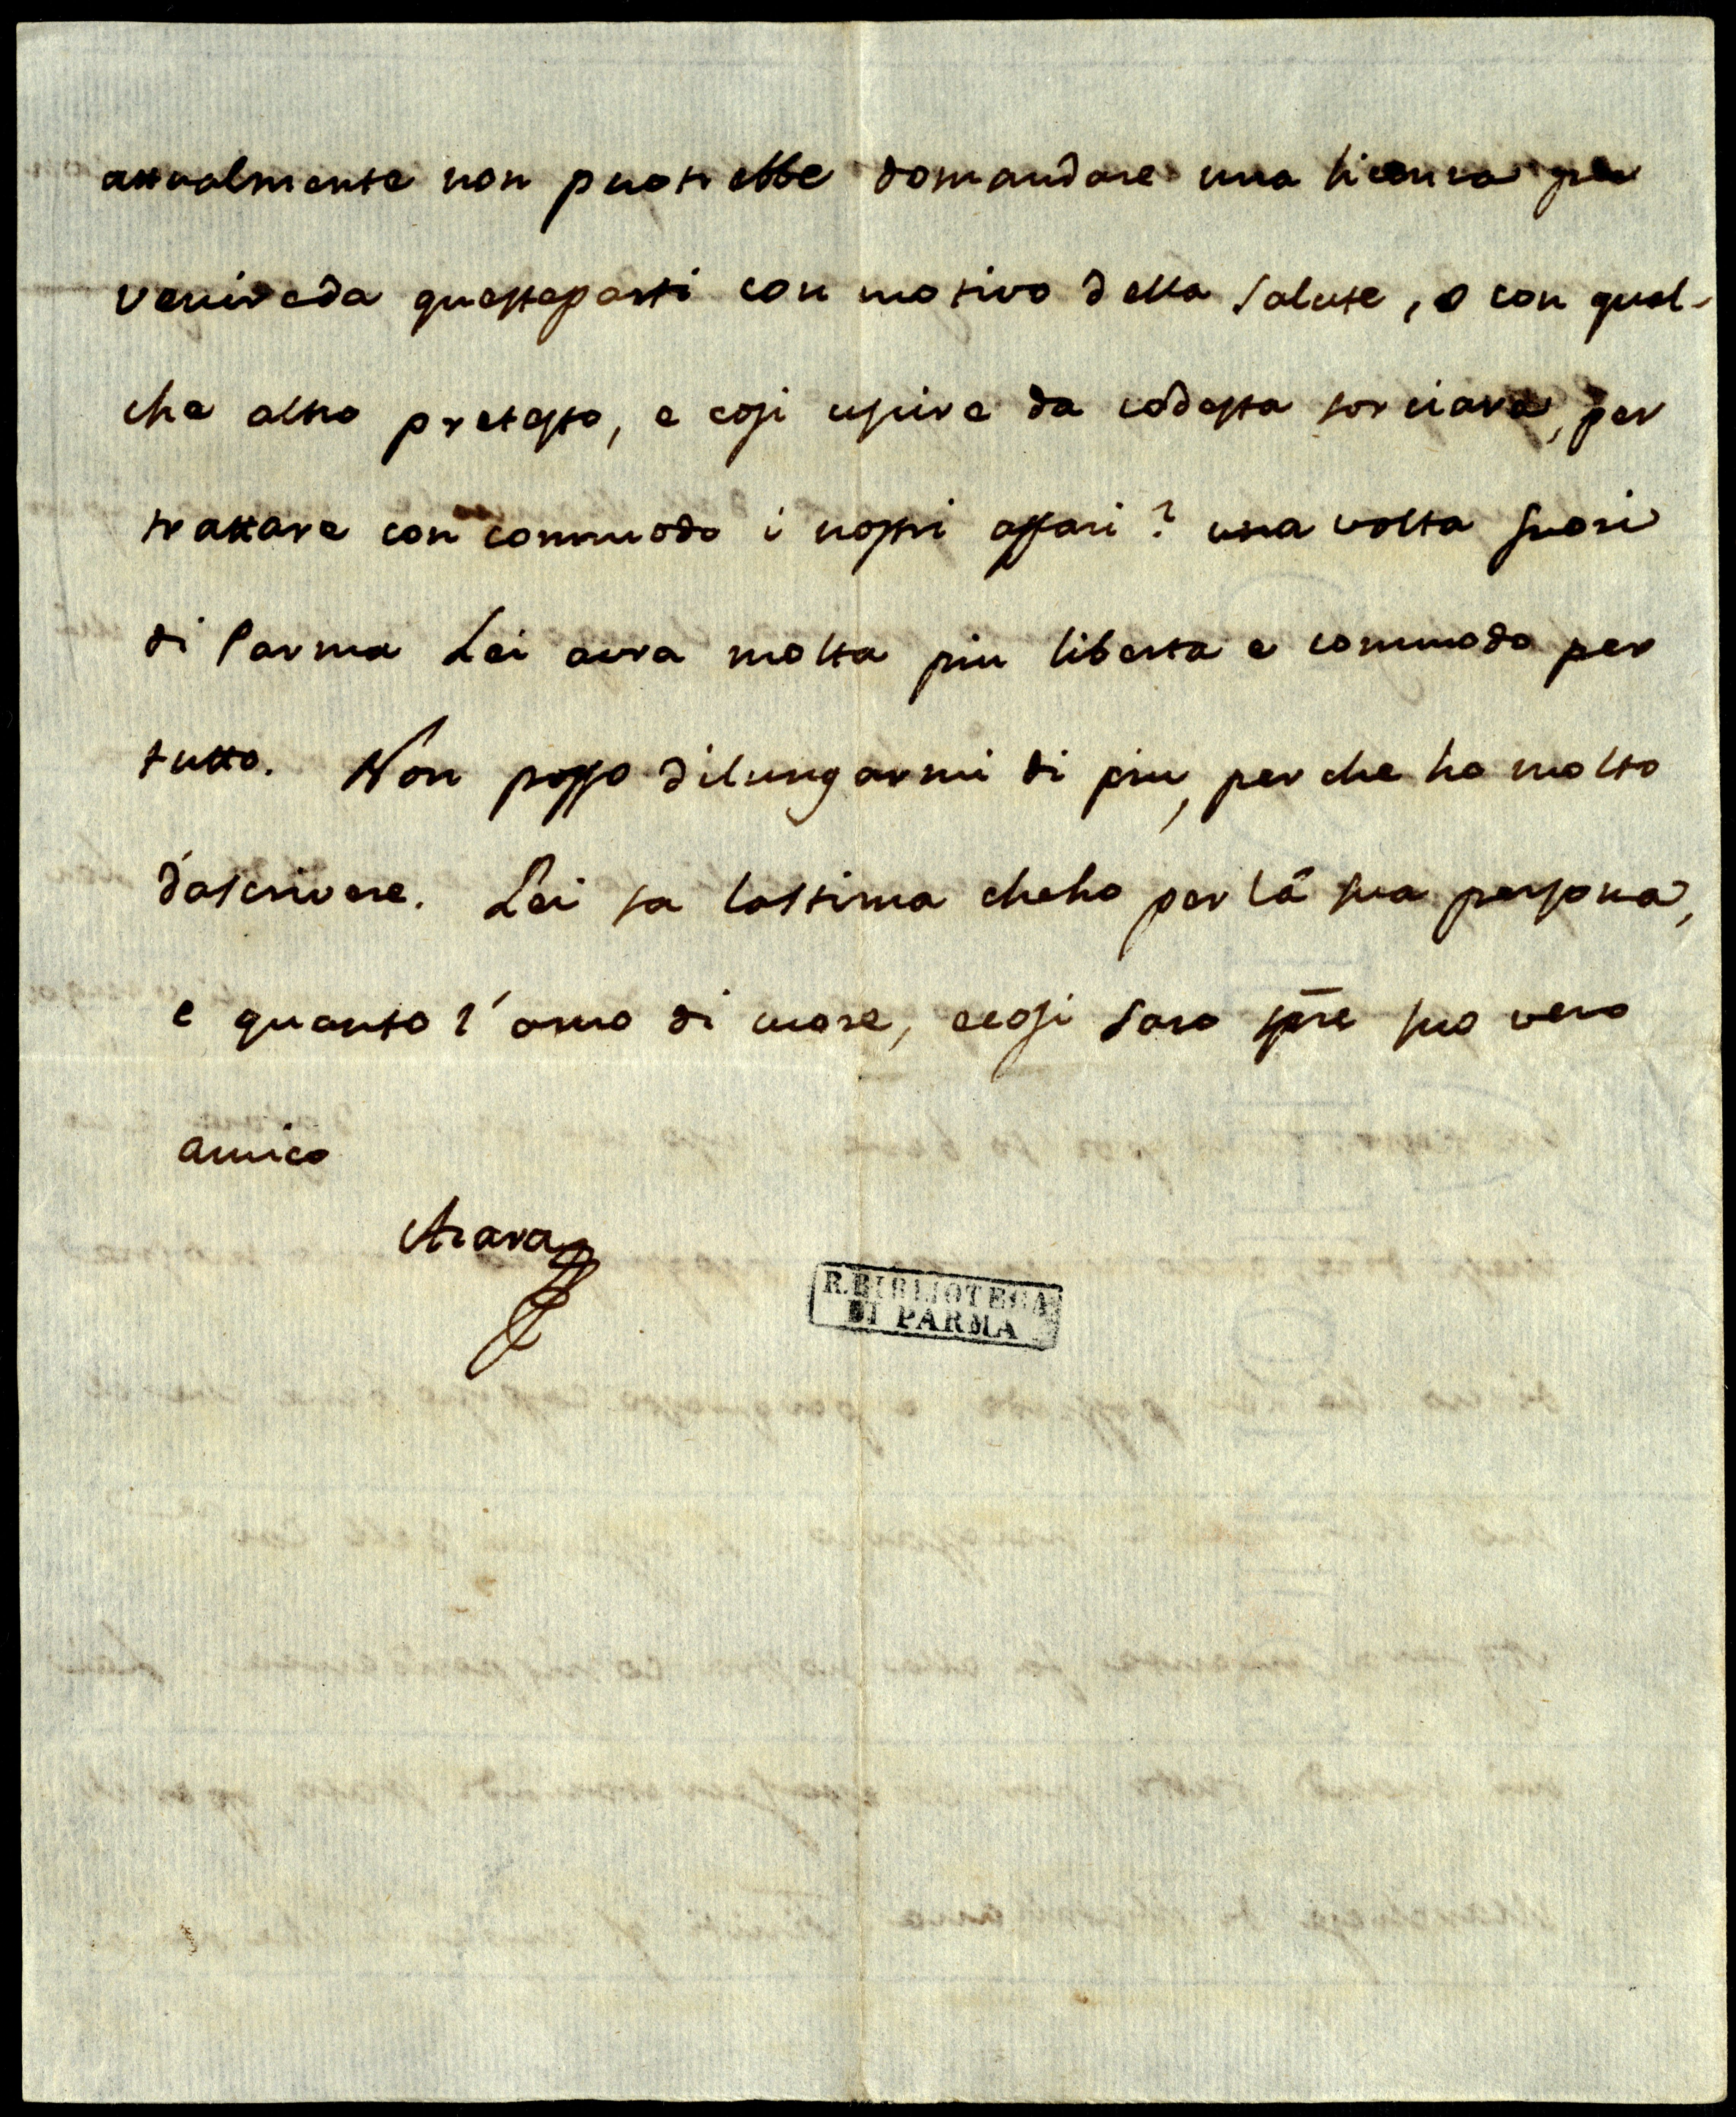 attualmente non puotrebbe domandare una licenza per
venire da queste parti con motivo della salute, o con qual-
che altro pretesto, e cosi uscire da codesta forciara, per
trattare con commodo i nostri affari? una volta fuori
di Parma Lei avra molta piu liberta e commodo per
tutto. Non posso dilungarmi di piu, perche ho molto
dascrivere. Lei sa lastima che ho per la sua persona,
e quanto l'amo di cuore, e cosi saro spre suo vero
amico
Azara
R. BIBLIOTECA
DI PARMA